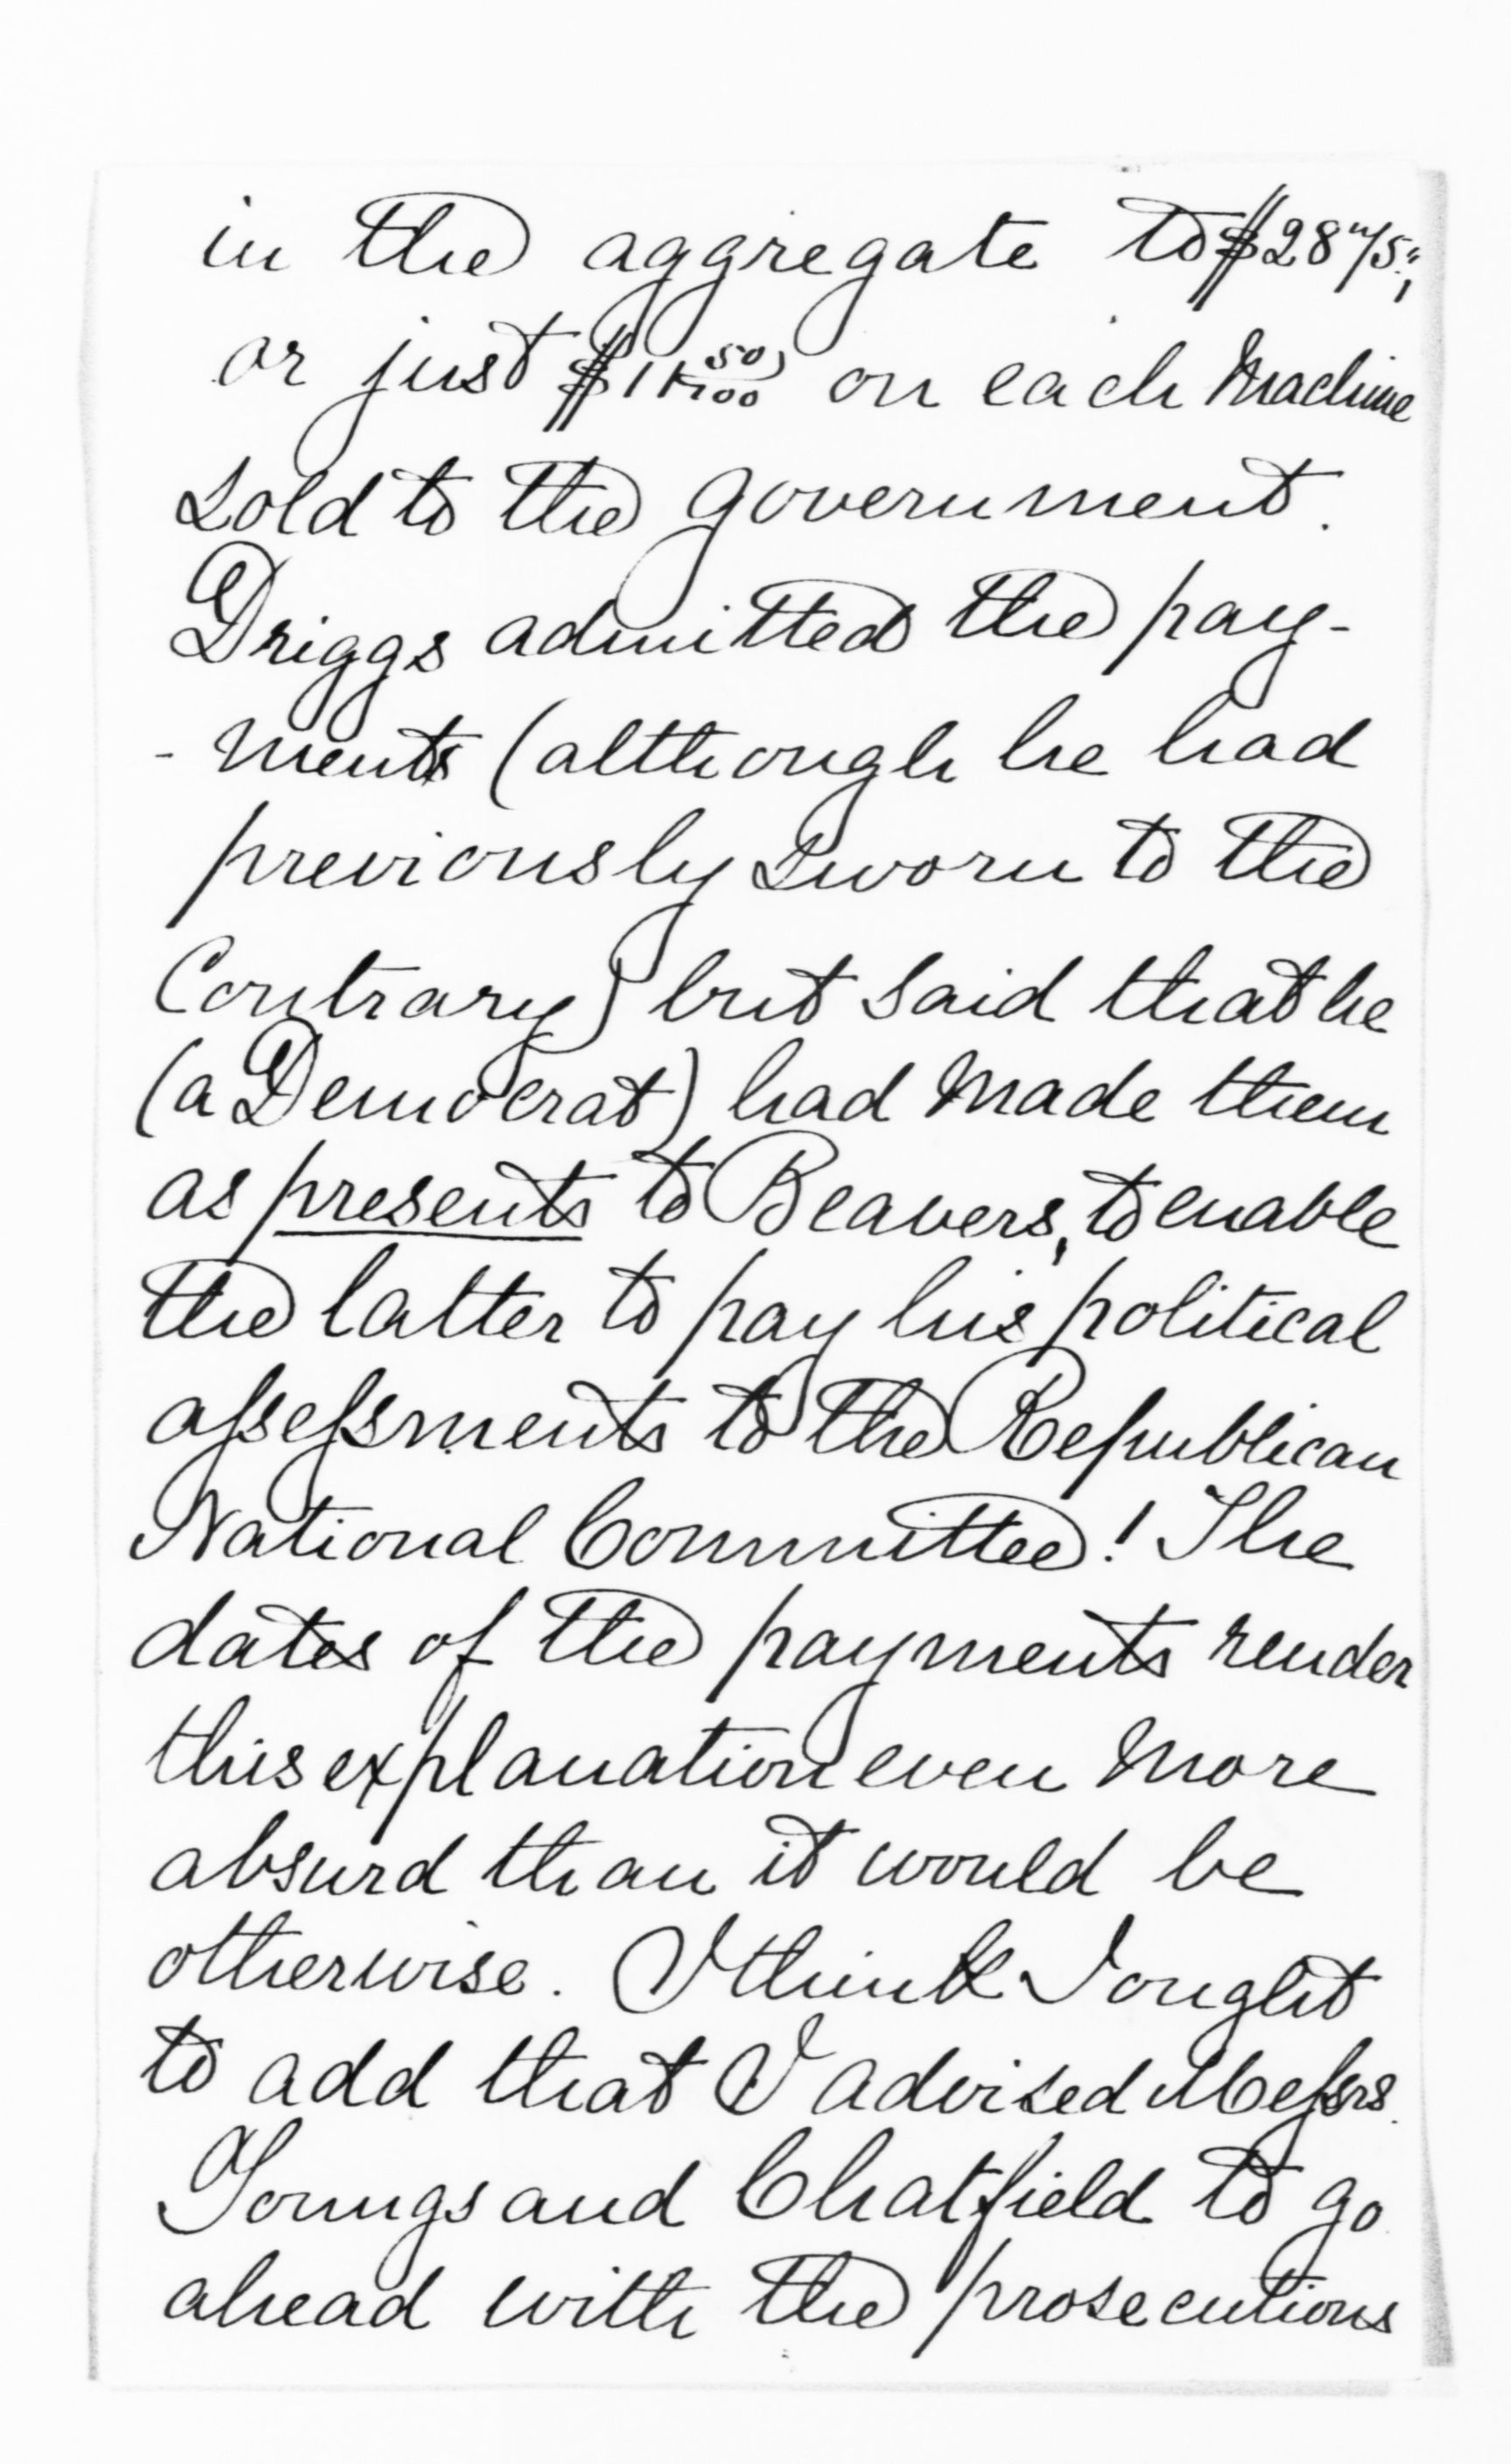 in the aggregate to $2875,
or just $11 50/100 on each machine
sold to the government.
Driggs admitted the pay-
-ments (although he had
previously sworn to the
Contrary) but said that he
(a Democrat) had made them
as presents to Beavers, to enable
the latter to pay his political
assessments to the Republican
National Committee! The
dates of the payments render
this explanation even more
absurd than it would be
otherwise. I think I ought
to add that I advised Messrs.
Youngs and Chatfield to go
ahead with the prosecutions